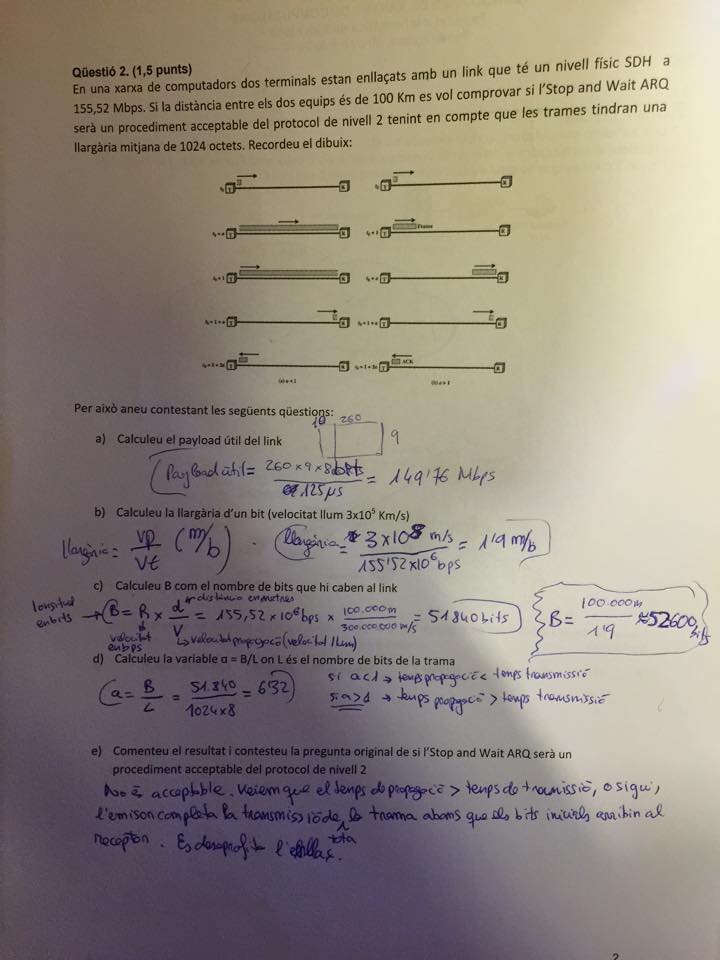 Qüestió 2. (1,5 punts)
En una xarxa de computadors dos terminals estan enllaçats amb un link que té un nivell físic SDH a
155,52 Mbps. Si la distància entre els dos equips és de 100 Km es vol comprovar si l'Stop and Wait ARQ
serà un procediment acceptable del protocol de nivell 2 tenint en compte que les trames tindran una
llargària mitjana de 1024 octets. Recordeu el dibuix:
t₀ T R t₀ T R
t₀ + a T R t₀ + 1 T Frame R
t₀ + 1 T R t₀ + a T R
t₀ + 1 + a T R t₀ + 1 + a T R
t₀ + 1 + 2a T R t₀ + 1 + 2a T ACK R
(a) a < 1 (b) a > 1
Per això aneu contestant les següents qüestions:
10 260
a) Calculeu el payload útil del link 9
Payload útil = 260 x 9 x 8 bits / 125 µs = 149'76 Mbps
b) Calculeu la llargària d'un bit (velocitat llum 3x10⁵ Km/s)
llargària = vp / vt (m/b) . llargària = 3 x 10⁸ m/s / 155'52 x 10⁶ bps = 1'9 m/b
c) Calculeu B com el nombre de bits que hi caben al link
distància en metres
longitud en bits → B = R x d / V = 155,52 x 10⁶ bps x 100.000 m / 300.000.000 m/s = 51840 bits
velocitat en bps
velocitat propagació (velocitat llum)
B = 100.000 m / 1'9 ≈ 52600 bits
d) Calculeu la variable α = B/L on L és el nombre de bits de la trama
a = B / L = 51.840 / 1024 x 8 = 6'32
si a<1 → temps propagació < temps transmissió
si a>1 → temps propagació > temps transmissió
e) Comenteu el resultat i contesteu la pregunta original de si l'Stop and Wait ARQ serà un
procediment acceptable del protocol de nivell 2
No és acceptable. Veiem que el temps de propagació > temps de transmissió, o sigui,
l'emisor completa la transmissió de tota la trama abans que els bits inicials arribin al
receptor. Es desaprofita l'enllaç.
2